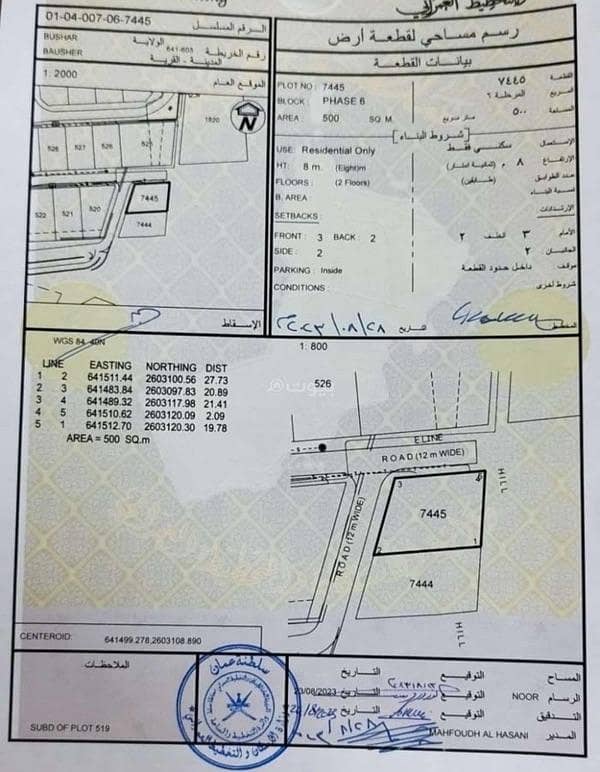 01-04-007-06-7445 الرقم المسلسل
BUSHAR الولاية
BAUSHER المدينة - القرية
641-603 رقم الخريطة
1: 2000 الموقع العام
1820
526 527 526 525
522 521 520
7445
7444
الإسقاط
التخطيط العمراني
رسم مساحي لقطعة أرض
بيانات القطعة
PLOT NO : 7445 ٧٤٤٥ القطعة
BLOCK : PHASE 6 المرحلة ٦ المربع
AREA 500 SQ. M متر مربع ٥٠٠ المساحة
شروط البناء
USE: Residential Only سكني فقط الإستعمال
HT: 8 m. (Eight)m ٨ الإرتفاع
FLOORS : (2 Floors) (طابقين) عدد الطوابق
B. AREA: نسبة البناء
SETBACKS : الإرتدادات
FRONT : 3 BACK : 2 الأمام ٣ الخلف ٢
SIDE : 2 الجانبان ٢
PARKING : Inside موقف داخل حدود القطعة
CONDITIONS : شروط أخرى
المخطط
WGS 84, 40N
1: 800
LINE EASTING NORTHING DIST
1 2 641511.44 2603100.56 27.73
2 3 641483.84 2603097.83 20.89
3 4 641489.32 2603117.98 21.41
4 5 641510.62 2603120.09 2.09
5 1 641512.70 2603120.30 19.78
AREA = 500 SQ.m
526
E LINE
ROAD (12 m WIDE)
ROAD (12 m WIDE)
HILL
3
7445
2
1
7444
HILL
بيوت
CENTEROID: 641499.278,2603108.890
الملاحظات
SUBD OF PLOT 519
سلطنة عمان
المساح التوقيع التاريخ
الرسام NOOR التوقيع التاريخ 23/08/2023
التدقيق التوقيع التاريخ
المدير MAHFOUDH AL HASANI